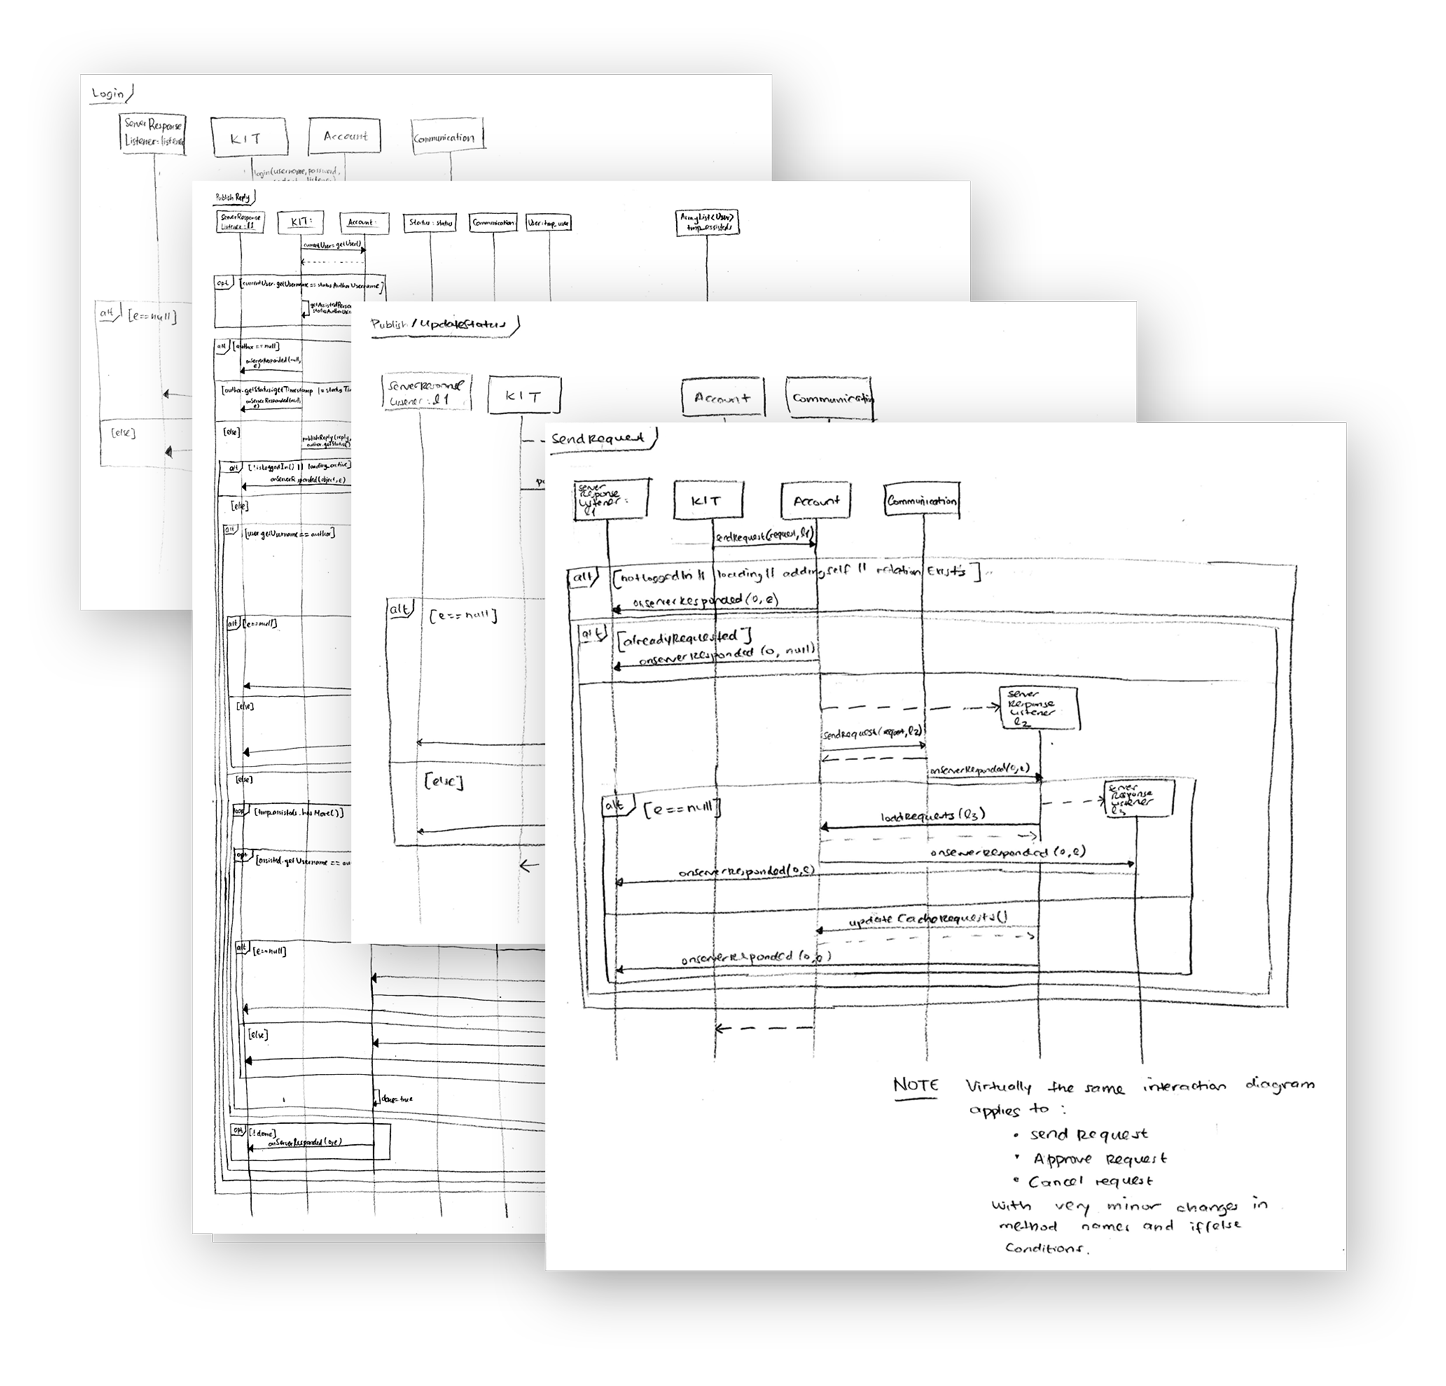 Login
Server Response
Listener: listener
KIT
Account
Communication
login(username, password,
alt [e==null]
[else]
Publish Reply
ServerResponse
Listener: l1
KIT:
Account:
Status: status
Communication
User: tmp_user
ArrayList<User>
tmp_assisteds
currentUser: getUser()
opt [currentUser.getUsername == statusAuthorUsername]
alt [author == null]
onServerResponded(null,
e)
[author.getStatus.getTimestamp != status Ti
onServerResponded(null,
e)
[else]
publishReply(reply,
author.getStatus()
alt [!isLoggedIn() || loading.active]
onServerResponded(object, e)
[else]
alt [user.getUsername == author]
alt [e==null]
[else]
[else]
loop [tmp_assisteds.hasMore()]
opt [assisted.getUsername == au
alt [e==null]
[else]
done=true
opt [!done]
onServerResponded(0,e)
Publish/UpdateStatus
KIT
Account
Communication
Listener: l1
alt [e==null]
[else]
SendRequest
Server
Response
Listener:
l1
KIT
Account
Communication
sendRequest(request, l1)
alt [notLoggedIn || loading || addingself || relation Exists]
onServerResponded (0, e)
alt [alreadyRequested]
onServerResponded (0, null)
Server
Response
Listener
l2
sendRequest(request, l2)
onServerResponded(0,e)
alt [e==null]
Server
Response
Listener
l3
loadRequests (l3)
onServerResponded (0,e)
onServerResponded(0,e)
updateCacheRequests()
onServerResponded (0,e)
NOTE Virtually the same interaction diagram
applies to:
• send Request
• Approve Request
• Cancel request
with very minor changes in
method names and if/else
Conditions.